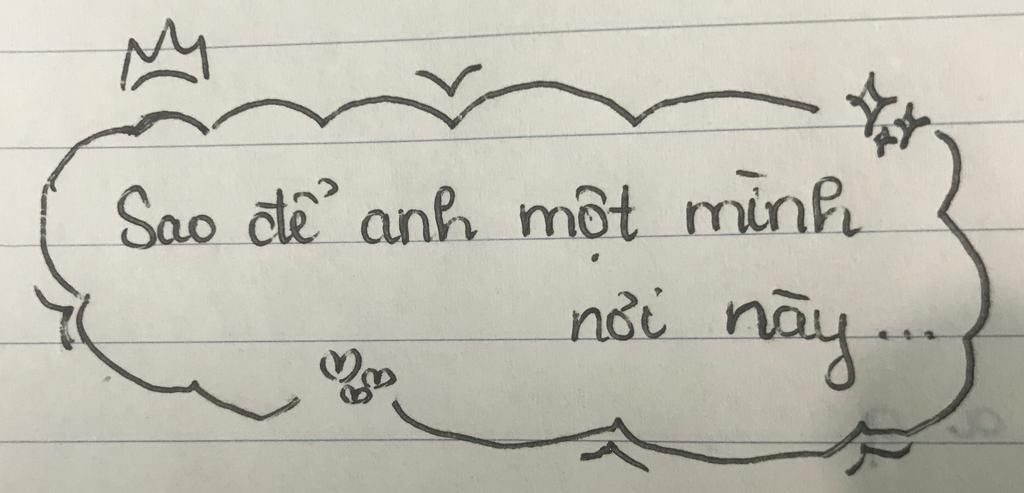 Sao để anh một mình
nơi này...